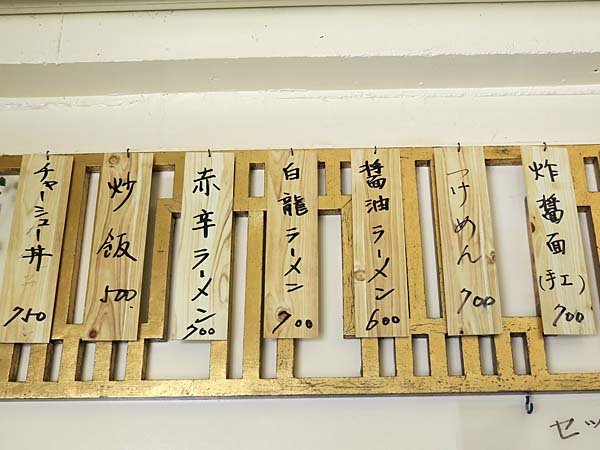 炸醤面(手工) 700
つけめん 700
醤油ラーメン 600
白龍ラーメン 700
赤辛ラーメン 700
炒飯 500.
チャーシュー丼 750
セッ